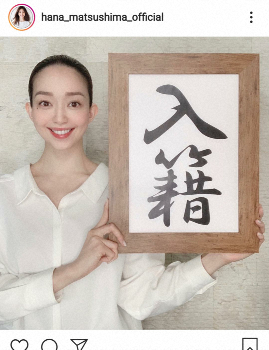 hana_matsushima_official
入
籍